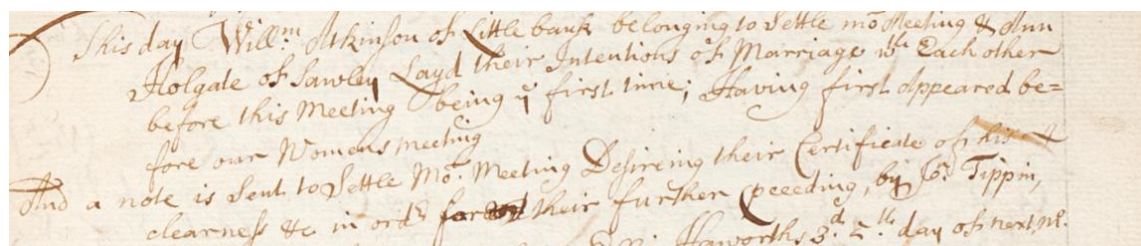 This day Will:m Atkinson of Little bank belonging to Settle mo: Meeting & Ann
Holgate of Sawley Layd their Intentions of Marriage wth Each other
before this Meeting being ye first time; Having first Appeared be=
fore our Womens meeting
And a note is Sent to Settle Mo: Meeting Desireing their Certificate of his
clearness &c in ordr for their further p'ceeding, by Jo: Tippin,
Haworths 3d 5th day of next Mo.